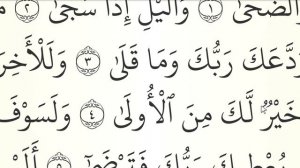 وَٱلضُّحَىٰ ١ وَٱلَّيْلِ إِذَا سَجَىٰ ٢
وَدَّعَكَ رَبُّكَ وَمَا قَلَىٰ ٣ وَلَلْأَخِرَ
خَيْرٌ لَّكَ مِنَ ٱلْأُولَىٰ ٤ وَلَسَوْفَ
يُعْطِيكَ رَبُّكَ فَتَرْضَىٰٓ ٥ أَلَمْ